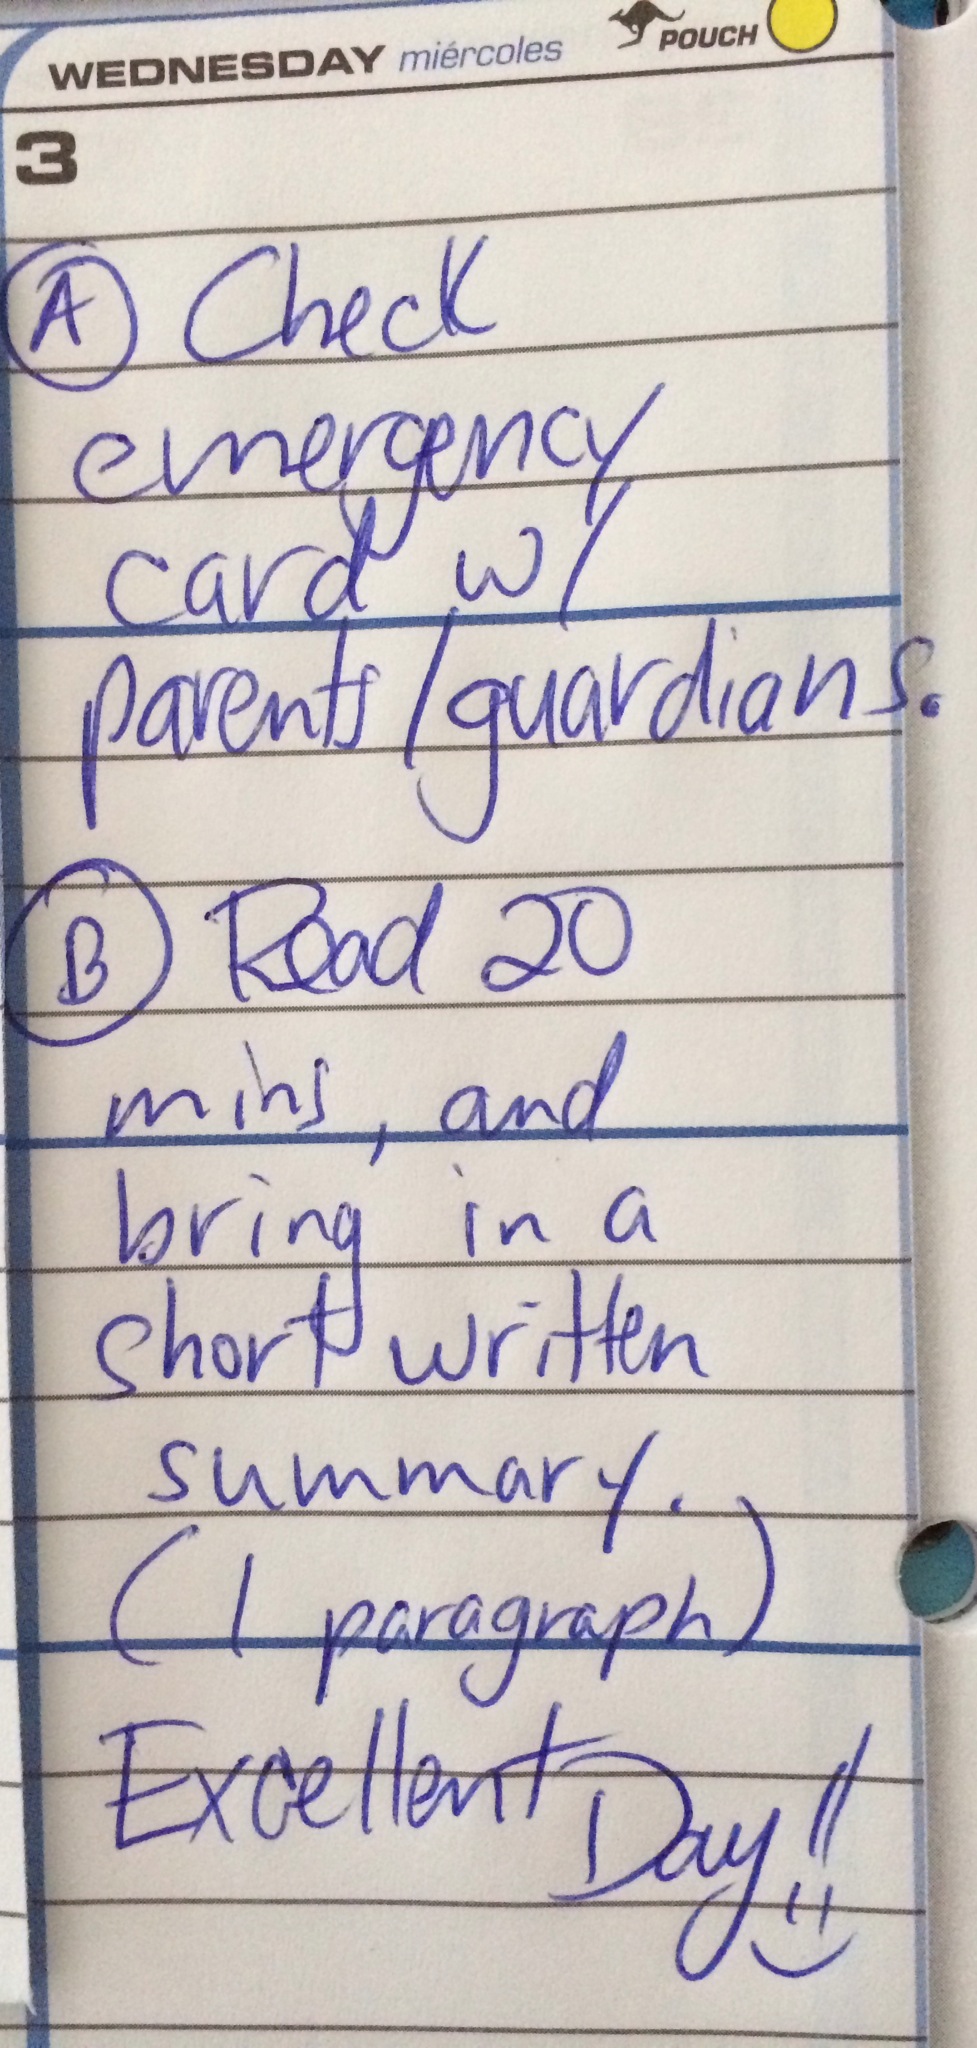 WEDNESDAY miércoles POUCH
3
A Check
emergency
card w/
parents/guardians.
B Read 20
mins, and
bring in a
short written
summary.
(1 paragraph)
Excellent
Day!!